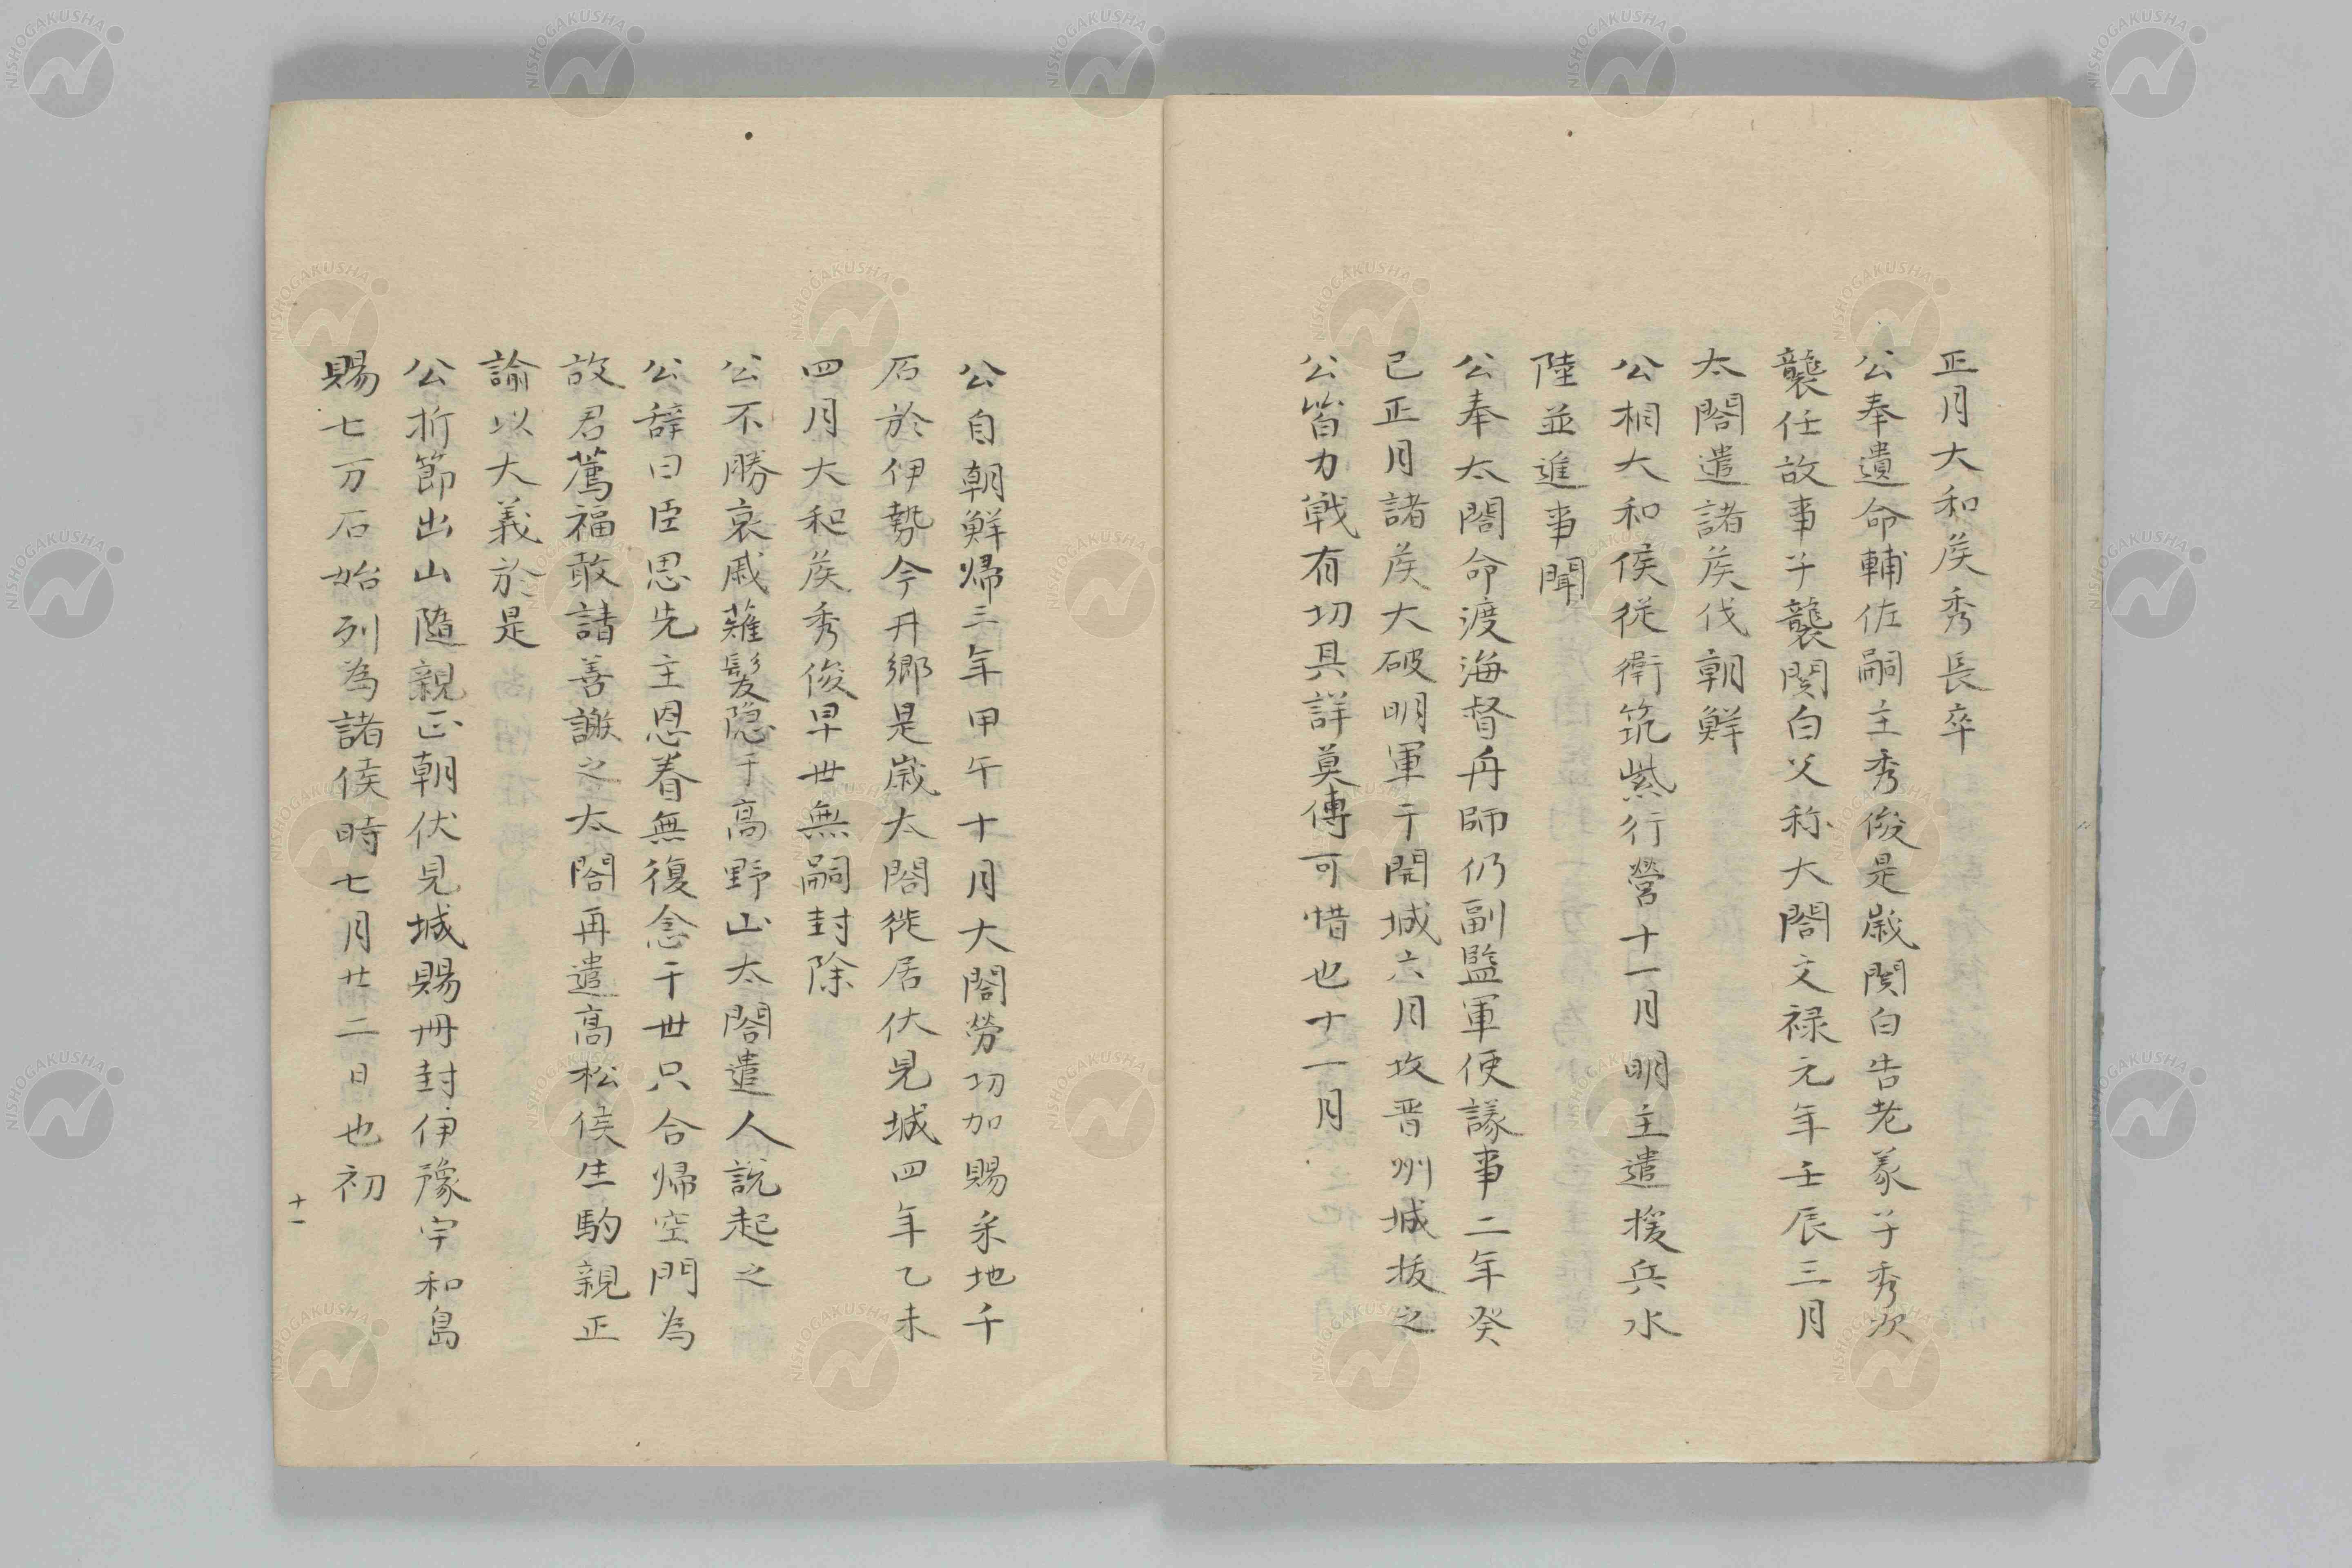 正月大和侯秀長卒
公奉遺命輔佐嗣主秀俊是歳関白告老養子秀次
襲任故事子襲関白父称大閤文禄元年壬辰三月
太閤遣諸侯伐朝鮮
公相大和侯従衛筑紫行營十一月明主遣援兵水
陸並進事聞
公奉太閤命渡海督舟師仍副監軍便議事二年癸
已正月諸侯大破明軍于開城六月攻晋州城抜之
公皆力戦有切具詳莫傳可惜也十一月
公自朝鮮帰三年甲午十月大閤勞切加賜采地千
石於伊勢今井郷是歳太閤徙居伏見城四年乙未
四月大和侯秀俊早世無嗣封除
公不勝哀戚薙髪隠于高野山太閤遣人説起之
公辞曰臣思先主恩眷無復念于世只合帰空門為
故君薦福敢請善謝之太閤再遣高松侯生駒親正
諭以大義於是
公折節出山随親正朝伏見城賜冊封伊豫宇和島
賜七万石始列為諸侯時七月廿二日也初
十一
NISHOGAKUSHA